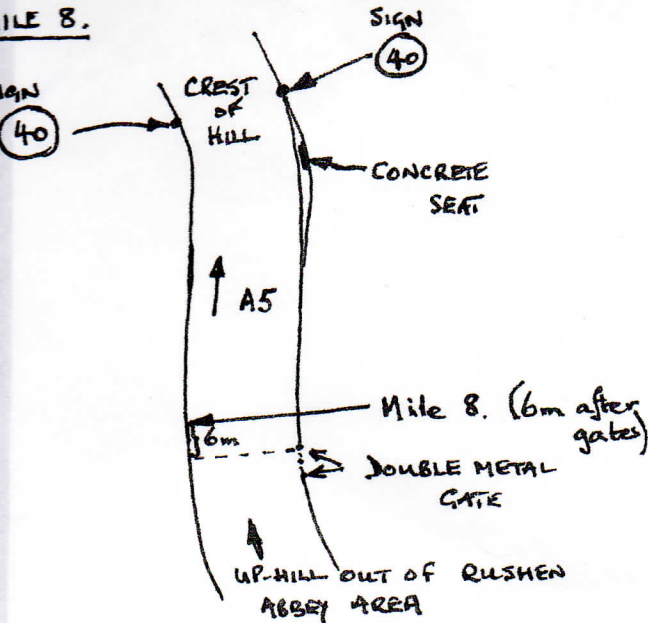 MILE 8.
SIGN
40
SIGN
40
CREST
OF
HILL
CONCRETE
SEAT
A5
Mile 8. (6m after
gates)
6m
DOUBLE METAL
GATE
UP-HILL OUT OF RUSHEN
ABBEY AREA